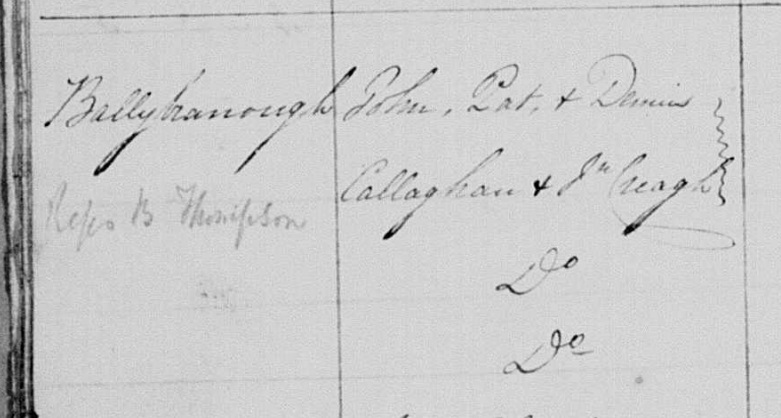 Ballyhanough John, Pat, & Dennis
Callaghan & Jn Creagh
Reps B Thompson
Do
Do